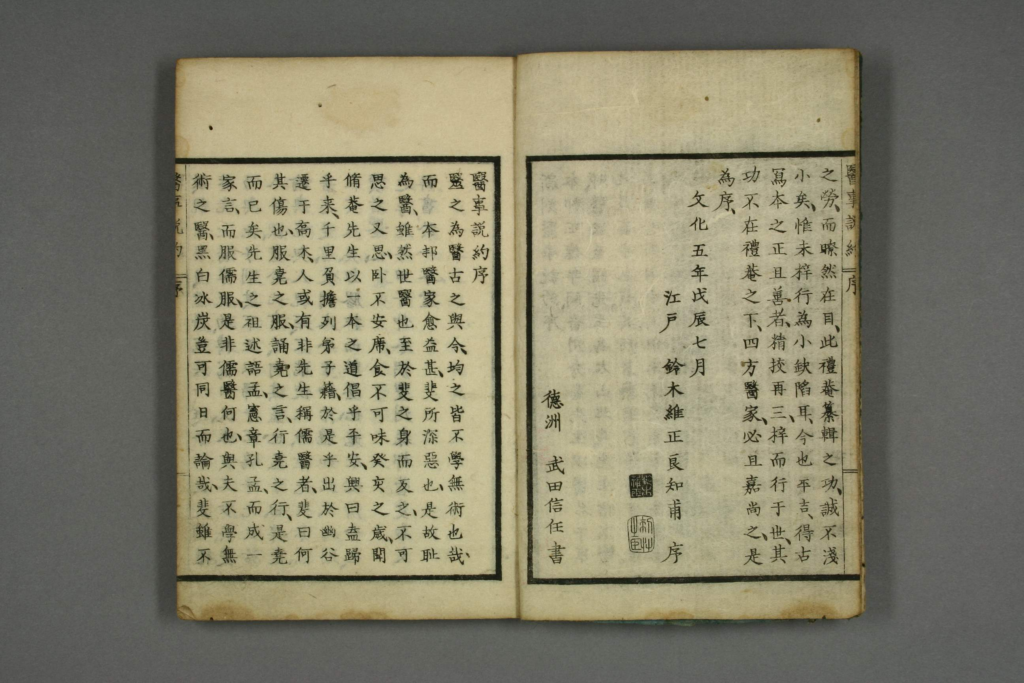 醫事說約 序
之勞而瞭然在目此禮菴纂輯之功誠不淺
小矣惟未梓行為小缺陷耳今也平吉得古
寫本之正且善者精挍再三梓而行于世其
功不在禮菴之下四方醫家必且嘉尚之是
為序
文化五年戊辰七月
江戶 鈴木維正良知甫 序
德洲 武田信任書
醫事說約序
毉之為醫古之與今均之皆不學無術也哉
而本邦醫家愈益甚斐所深惡也是故耻
為醫雖然世醫也至於斐之身而反之不可
思之又思臥不安席食不可味癸亥之歲聞
脩菴先生以一本之道倡乎平安興曰盍歸
乎來千里負擔列弟子籍於是乎出於幽谷
遷于喬木人或有非先生稱儒醫者斐曰何
其傷也服堯之服誦堯之言行堯之行是堯
而已矣先生之祖述語孟憲章孔孟而成一
家言而服儒服是非儒醫何也與夫不學無
術之醫黑白冰炭豈可同日而論哉斐雖不
醫事說約 序